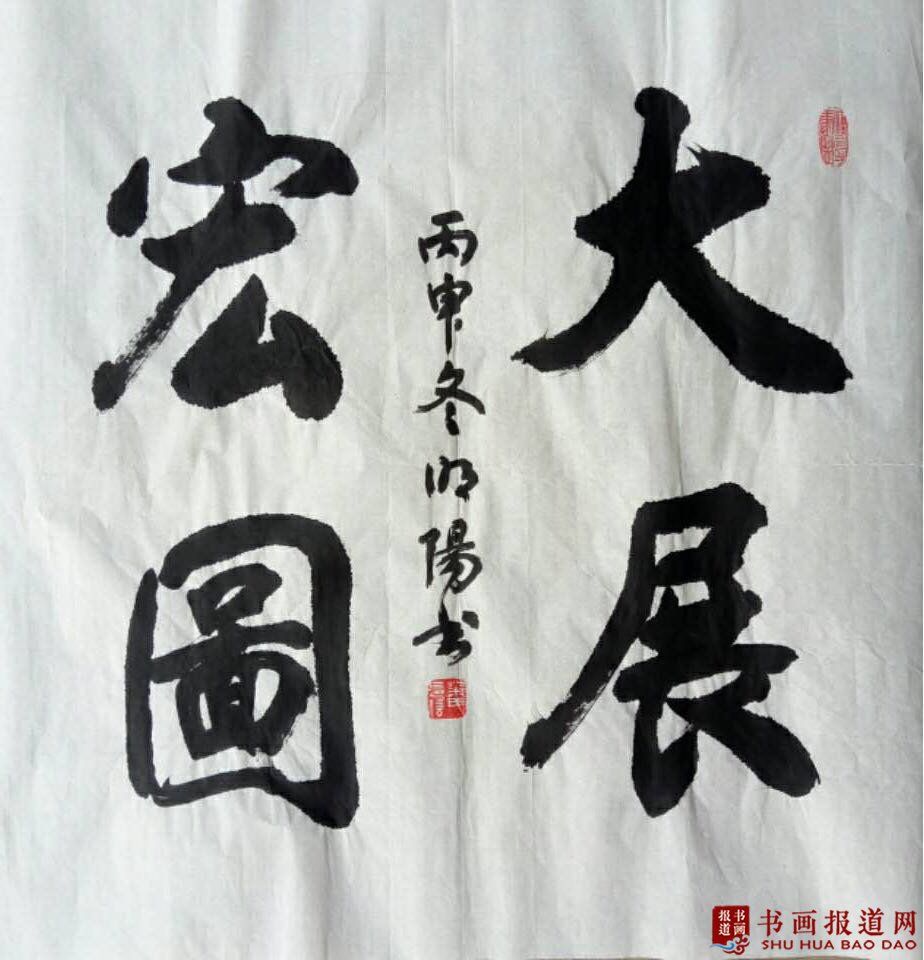 大展
宏圖
丙申冬明陽书
书画报道
书画报道网
SHU HUA BAO DAO